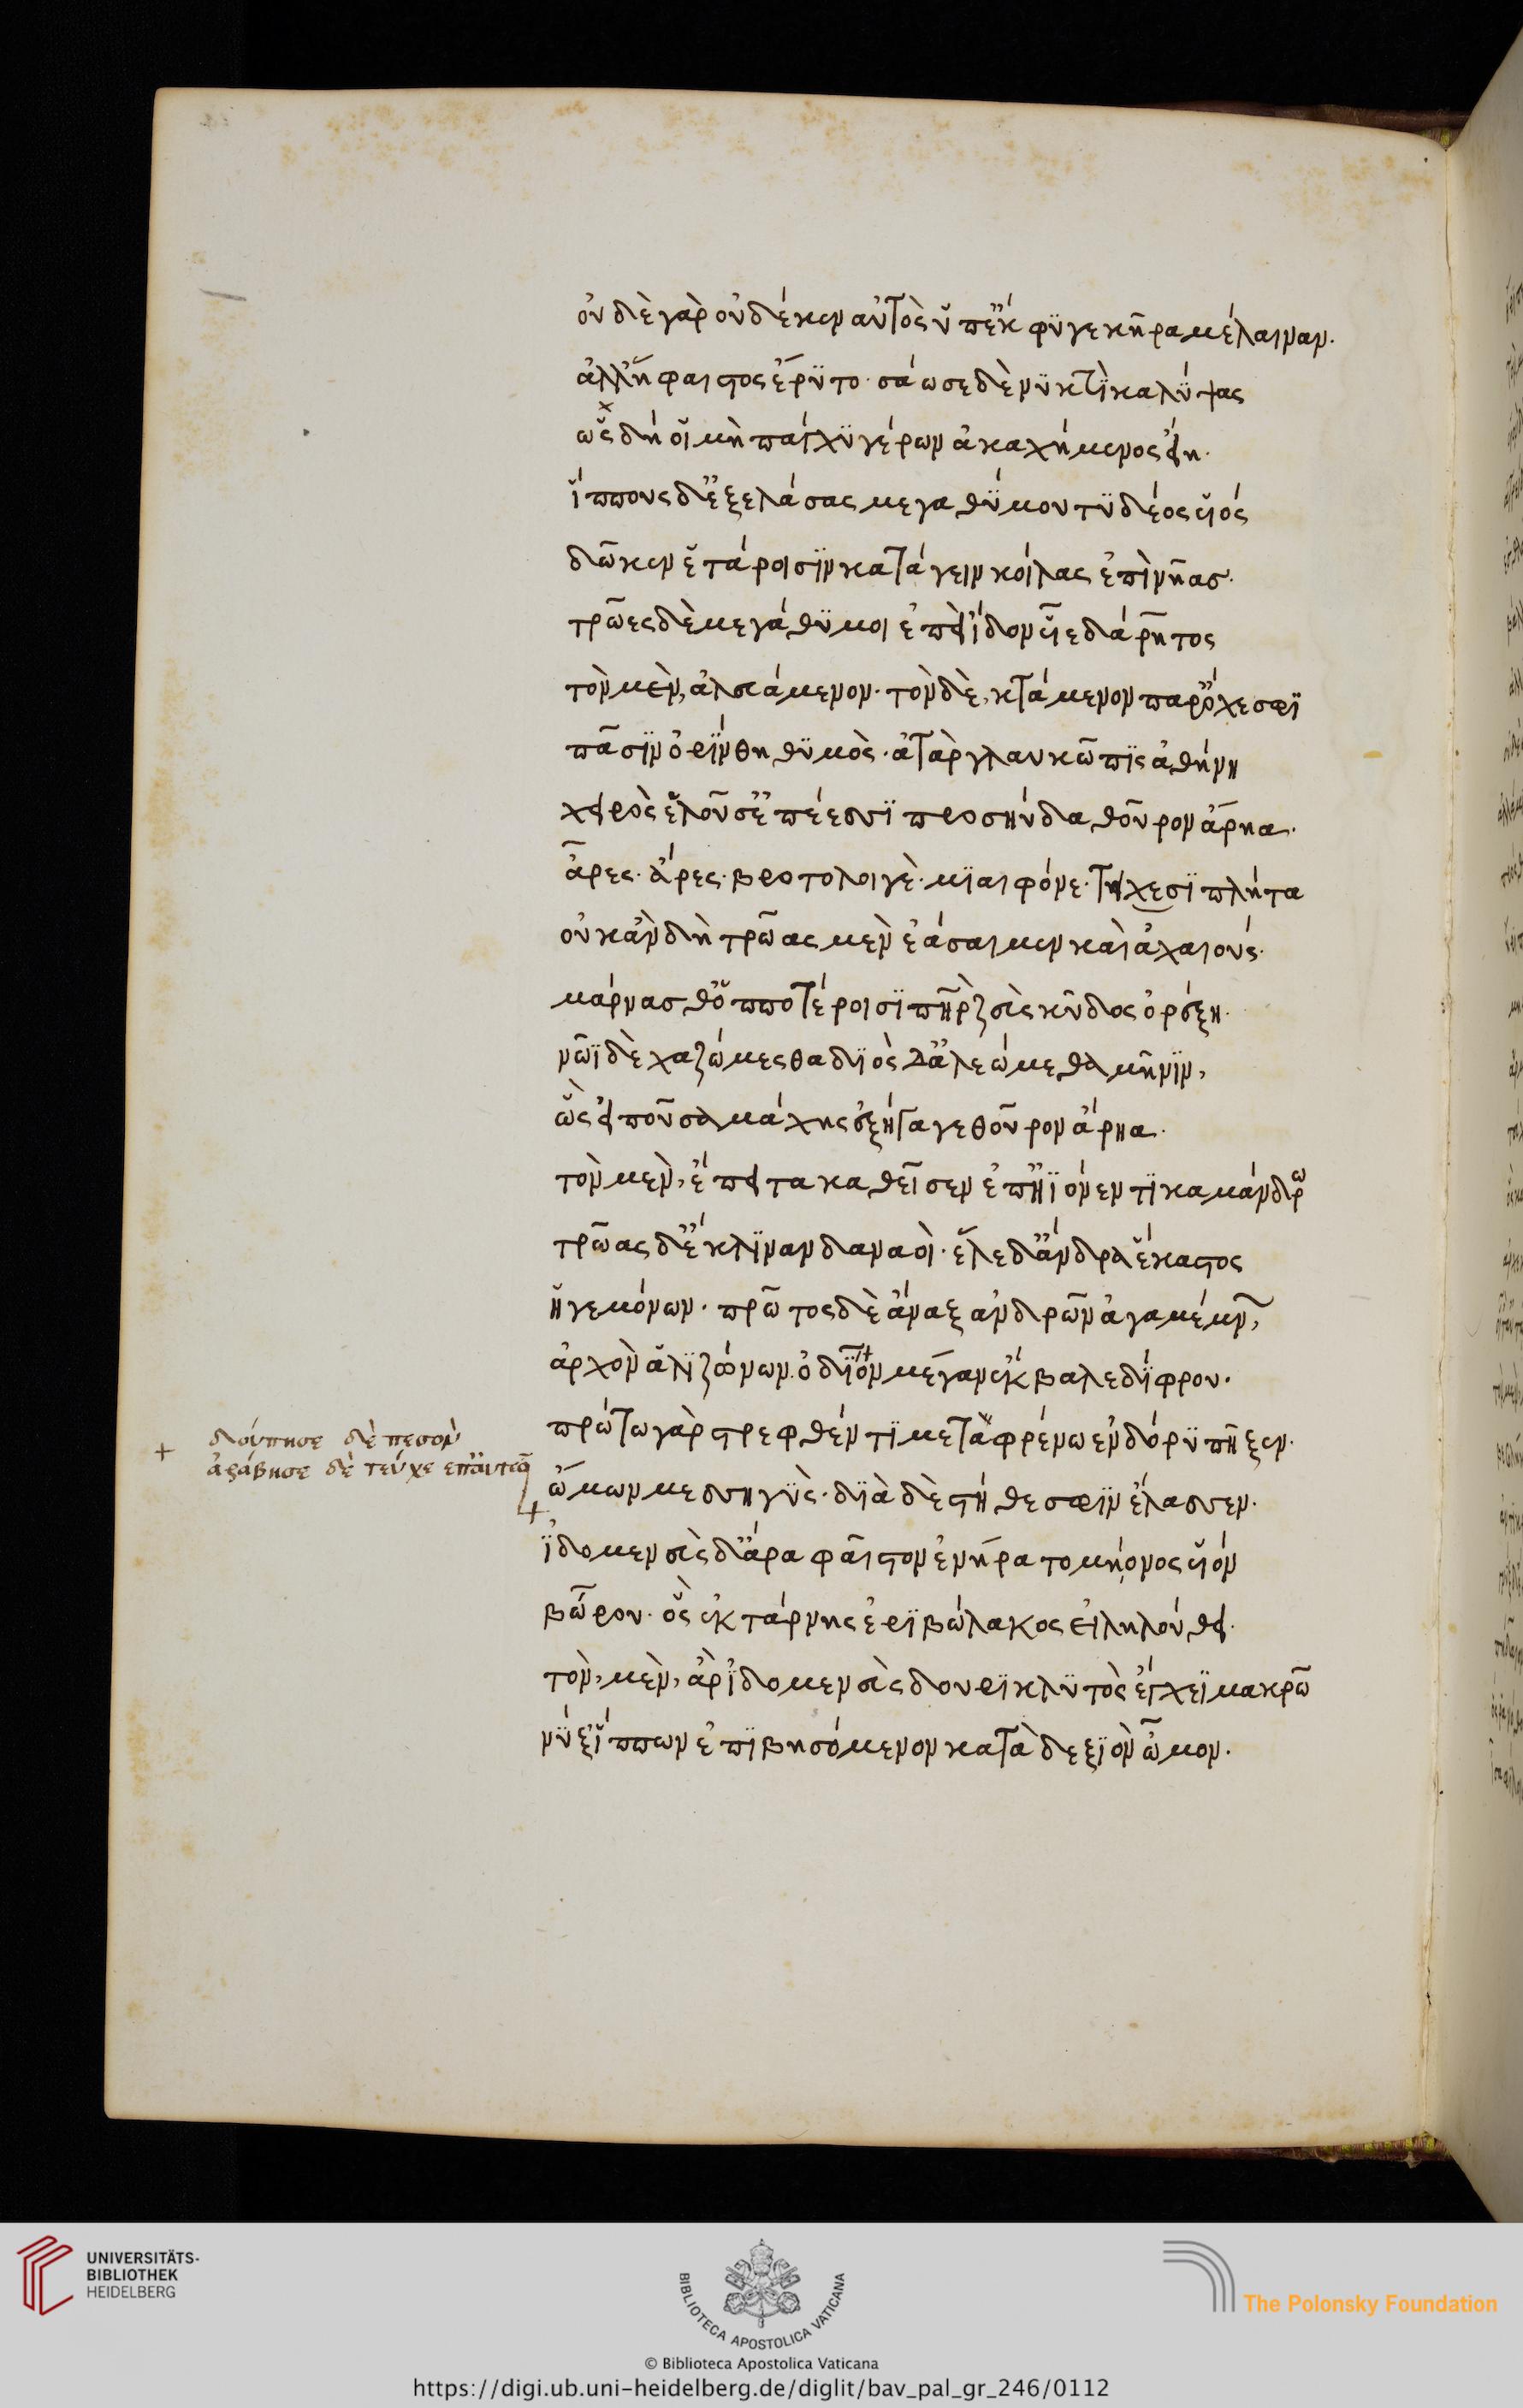 οὐδὲ γὰρ οὐδέ κεν αὐτὸς ὑπέκφυγε κῆρα μέλαιναν·
ἀλλ' ἥφαιστος ἔρυτο· σάωσε δὲ νυκτὶ καλύψας
ὡς δή οἱ μὴ πάγχυ γέρων ἀκαχήμενος εἴη·
ἵππους δ' ἐξελάσας μεγαθύμου τυδέος υἱός
δῶκεν ἑτάροισιν κατάγειν κοίλας ἐπὶ νῆας·
τρῶες δὲ μεγάθυμοι ἐπεὶ ἴδον υἷε δάρητος
τὸν μὲν, ἀλευάμενον· τὸν δὲ, κτάμενον παρ' ὄχεσφι
πᾶσιν ὀρίνθη θυμὸς· ἀτὰρ γλαυκῶπις ἀθήνη
χειρὸς ἑλοῦσ' ἐπέεσσι προσηύδα θοῦρον ἄρηα·
ἆρες· ἄρες· βροτολοιγὲ· μιαιφόνε· τειχεσιπλῆτα
οὐκ ἂν δὴ τρῶας μὲν ἐάσαιμεν καὶ ἀχαιούς·
μάρνασθ' ὁπποτέροισι πῆρ ζεὺς κῦδος ὀρέξη·
νῶϊ δὲ χαζώμεσθα διὸς δ' ἀλεώμεθα μῆνιν,
ὣς εἰποῦσα μάχης ἐξήγαγε θοῦρον ἄρηα·
τὸν μὲν, ἔπειτα καθεῖσεν ἐπ' ἠϊόεντι καμάνδρω
τρῶας δ' ἔκλιναν δαναοὶ· ἕλε δ' ἄνδρα ἕκαστος
ἡγεμόνων· πρῶτος δὲ ἄναξ ἀνδρῶν ἀγαμέμνων,
ἀρχὸν ἁλιζώνων ὀδῖον μέγαν ἔκβαλε δίφρου·
πρώτω γὰρ στρεφθέντι μεταφρένω ἐν δόρυ πῆξεν·
ὤμων μεσσηγὺς· διὰ δὲ στήθεσφιν ἔλασσεν·
+ δούπησε δὲ πεσὼν
ἀράβησε δὲ τεύχε' ἐπ' αὐτῶ
ἰδομενεὺς δ' ἄρα φαῖστον ἐνήρατο μήονος υἱόν
βώρου· ὃς ἐκ τάρνης ἐριβώλακος εἰληλούθει·
τὸν, μὲν, ἄρ' ἰδομενεὺς δουρικλυτὸς ἔγχεϊ μακρῶ
νύξ' ἵππων ἐπιβησόμενον κατὰ δεξιὸν ὦμον·
UNIVERSITÄTS-
BIBLIOTHEK
HEIDELBERG
BIBLIOTECA APOSTOLICA VATICANA
The Polonsky Foundation
© Biblioteca Apostolica Vaticana
https://digi.ub.uni-heidelberg.de/diglit/bav_pal_gr_246/0112